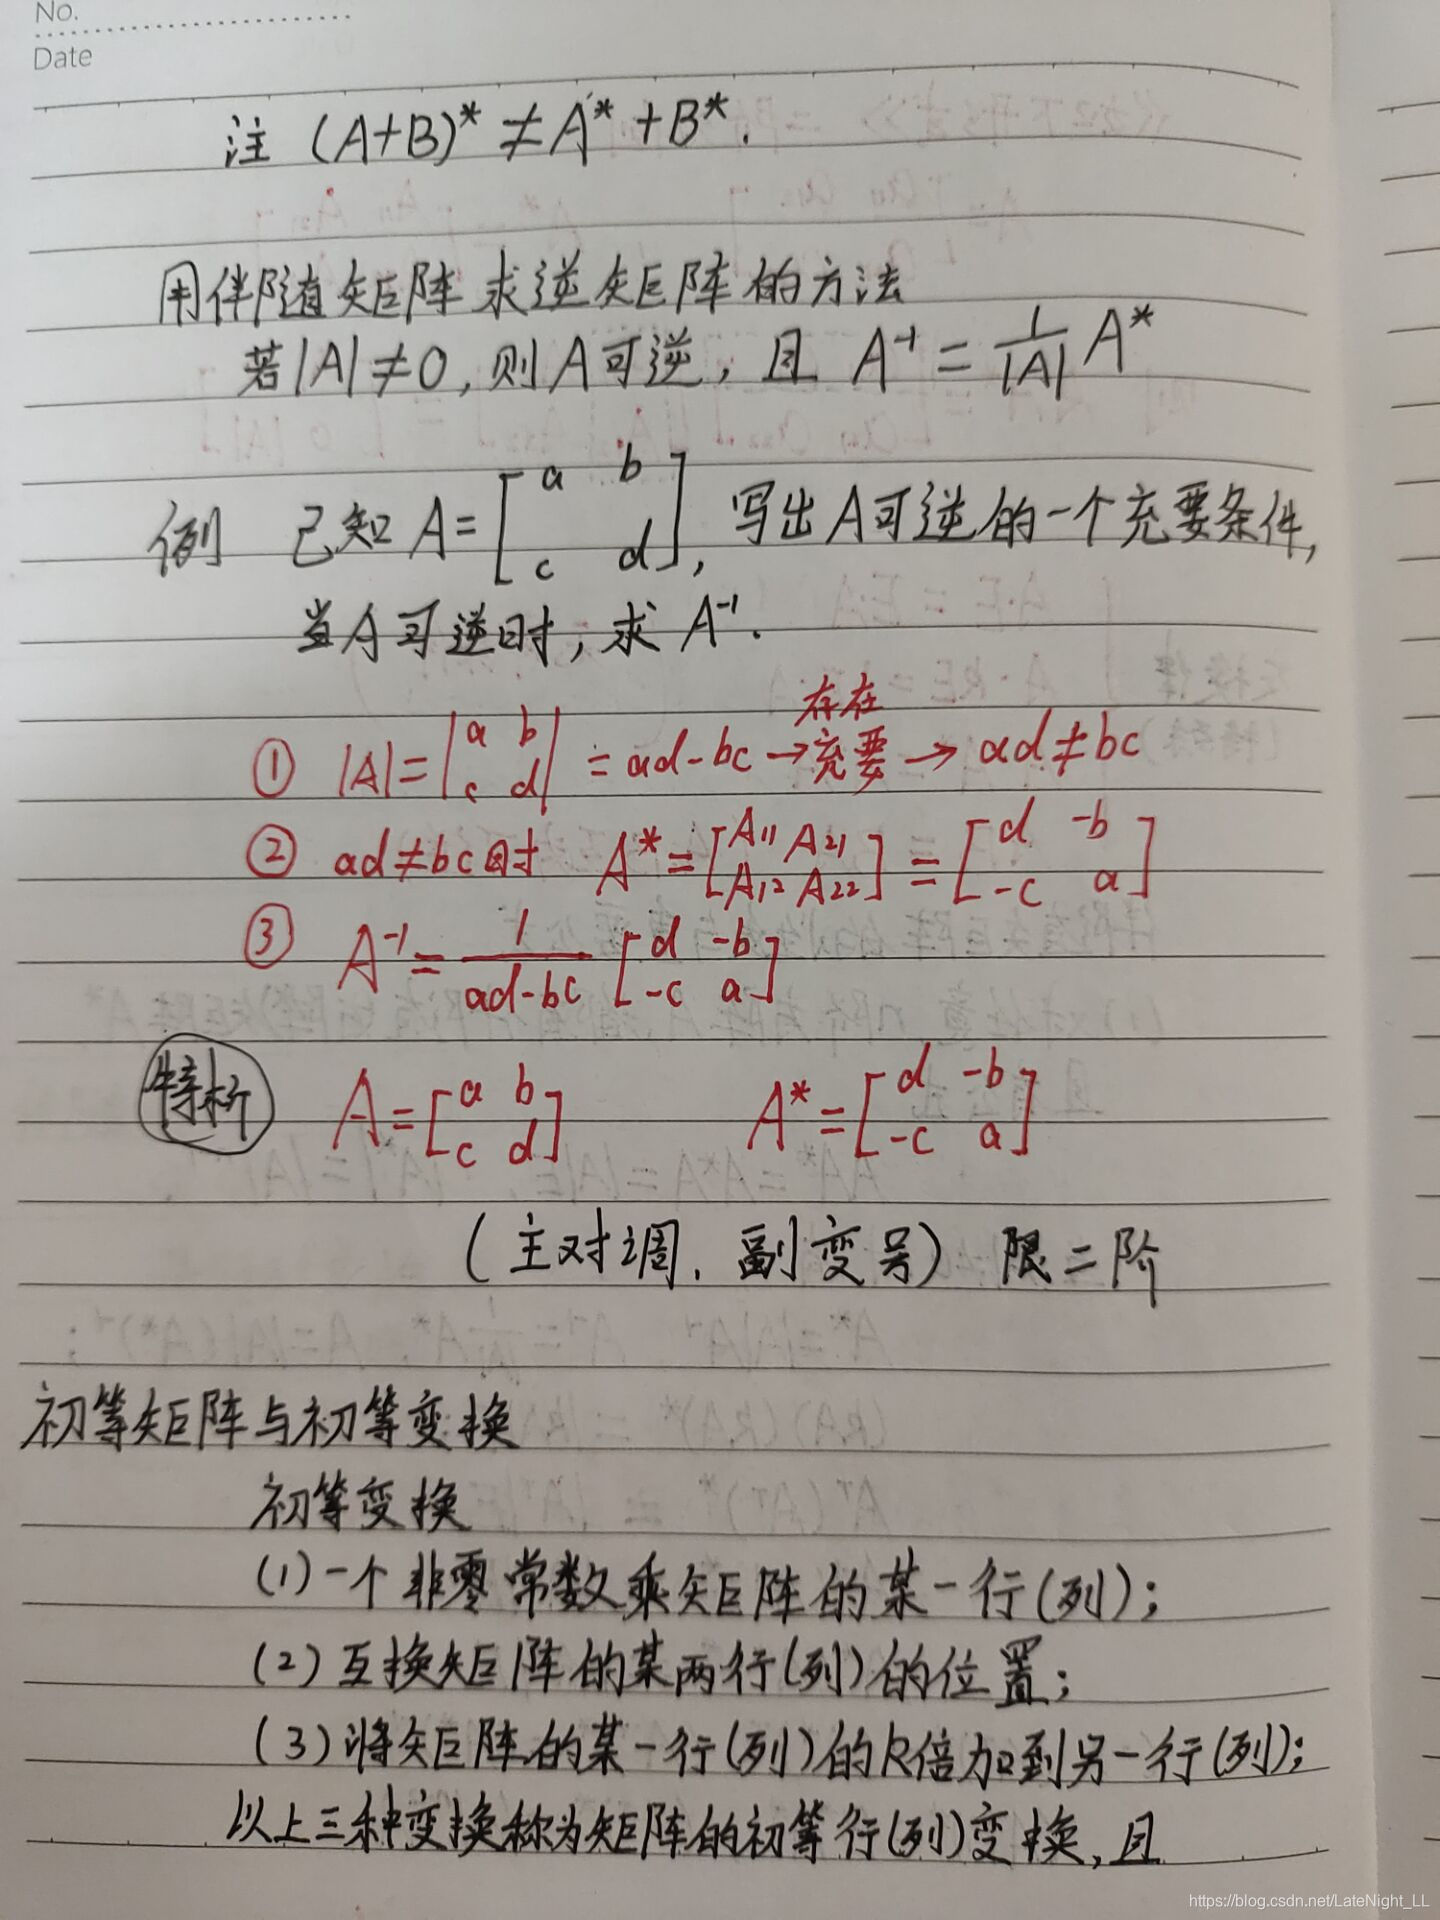 No.
Date
注 (A+B)* ≠ A* + B*.
用伴随矩阵求逆矩阵的方法
若|A|≠0, 则A可逆, 且 A⁻¹ = 1/|A| A*
例 已知 A = [a b; c d], 写出A可逆的一个充要条件,
当A可逆时, 求 A⁻¹.
存在
① |A| = |a b; c d| = ad-bc → 充要 → ad≠bc
② ad≠bc时 A* = [A₁₁ A₂₁; A₁₂ A₂₂] = [d -b; -c a]
③ A⁻¹ = 1/(ad-bc) [d -b; -c a]
特析 A = [a b; c d] A* = [d -b; -c a]
(主对调, 副变号) 限二阶
初等矩阵与初等变换
初等变换
(1) 一个非零常数乘矩阵的某一行(列);
(2) 互换矩阵的某两行(列)的位置;
(3) 将矩阵的某一行(列)的k倍加到另一行(列);
以上三种变换称为矩阵的初等行(列)变换, 且
https://blog.csdn.net/LateNight_LL